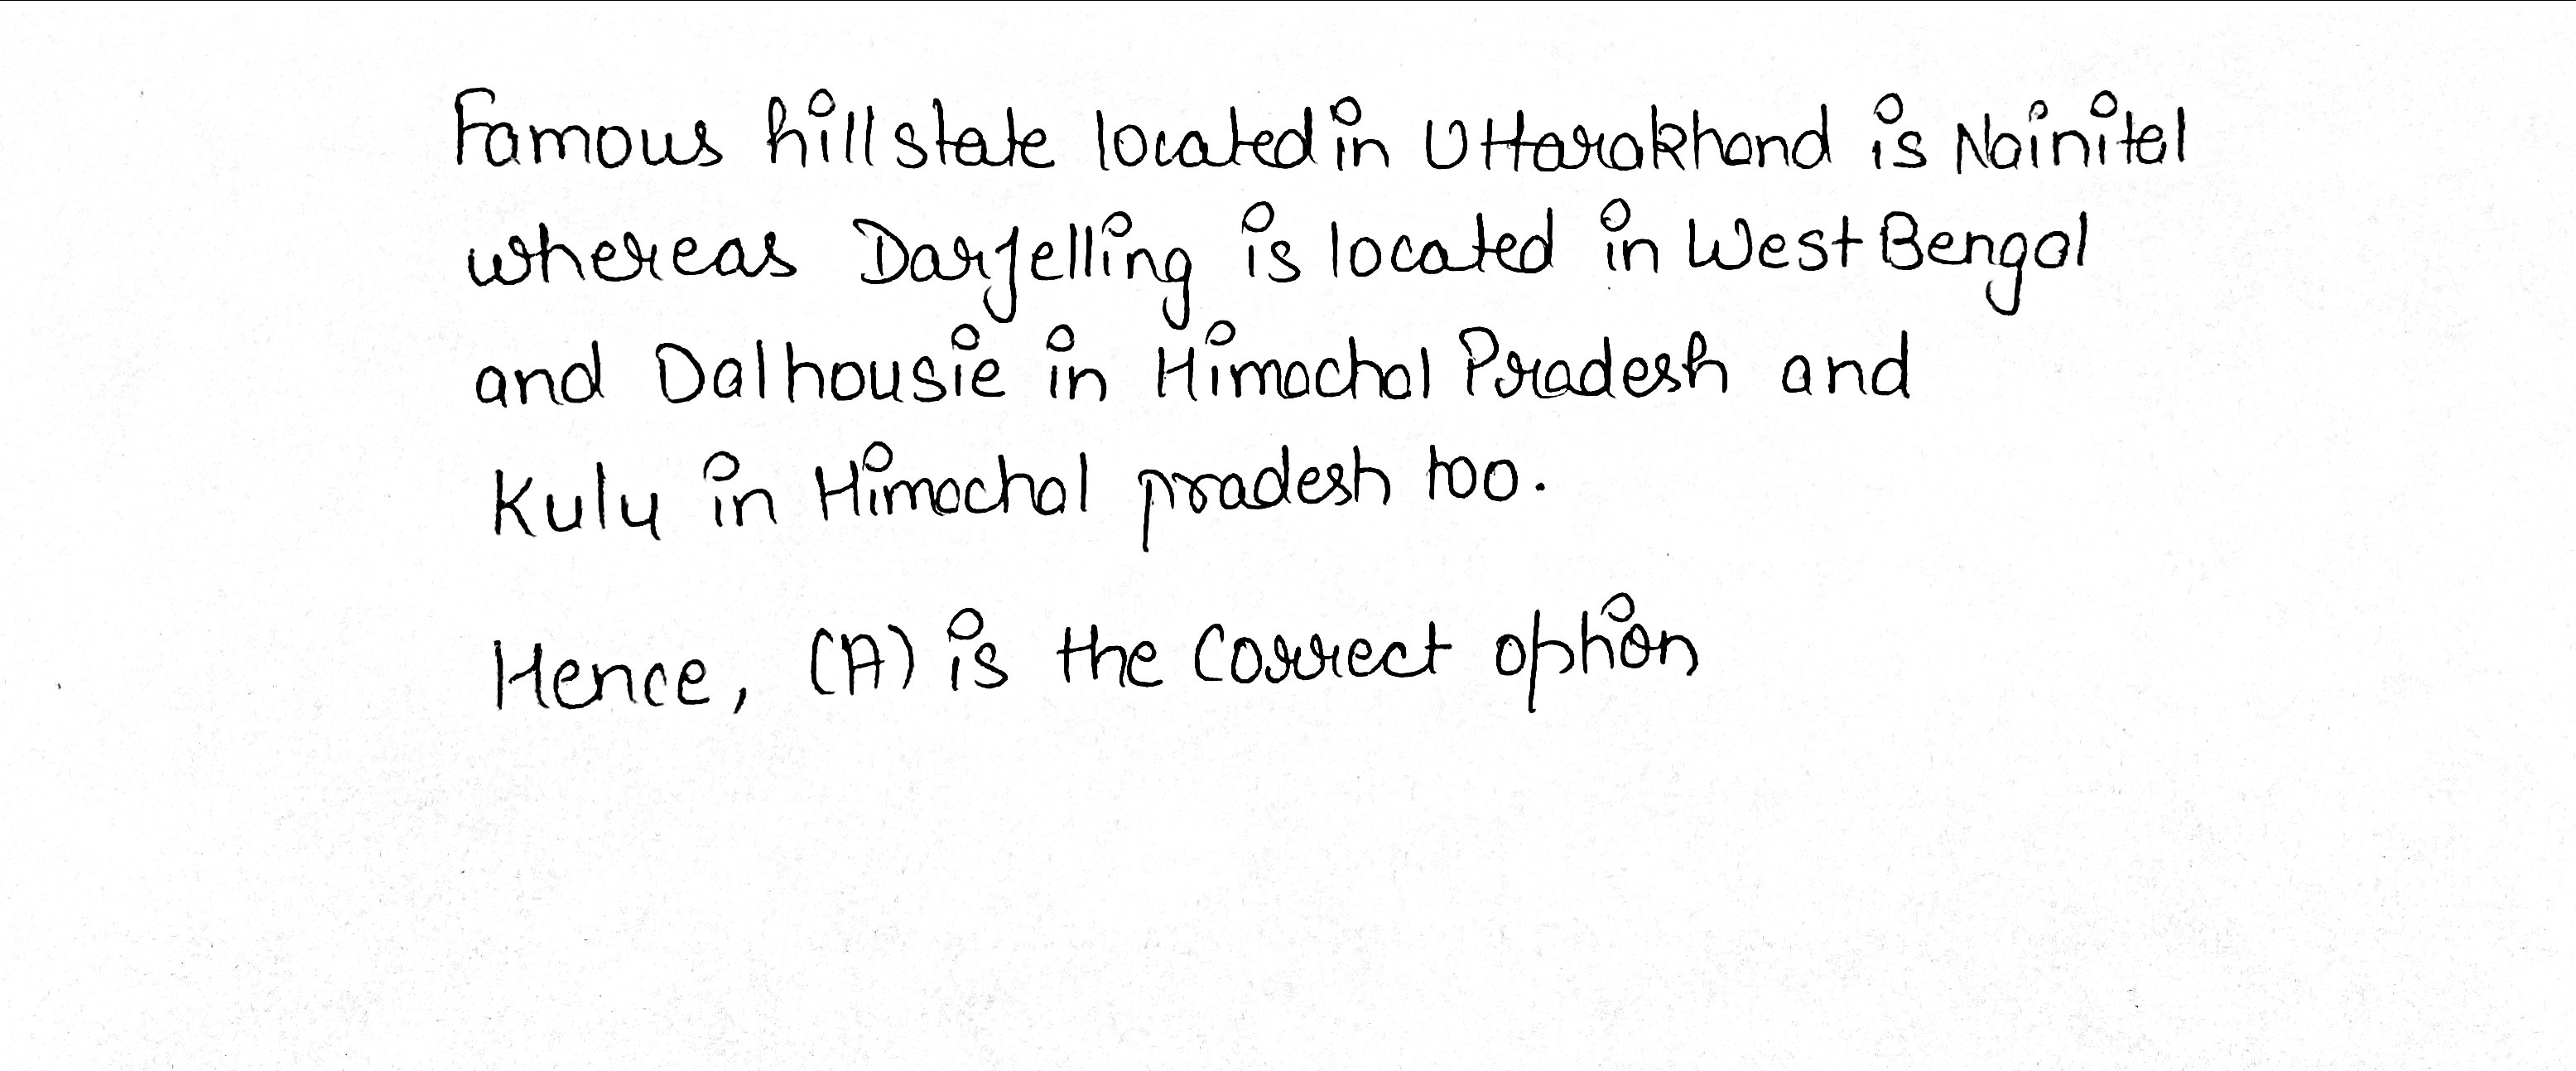 Famous hill state located in Uttarakhand is Nainital
whereas Darjelling is located in West Bengal
and Dalhousie in Himachal Pradesh and
Kulu in Himachal pradesh too.
Hence, (A) is the correct option